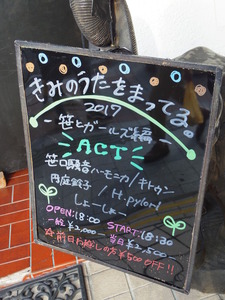 きみのうたをまってる。
2017
-笹とガールズ編-
ACT
笹口騒音ハーモニカ/キトゥン
円庭鈴子/H.Pylori
しょーしょー
OPEN:18:00 START:18:30
一般¥2,000 当日¥2,500
¥500 OFF!!